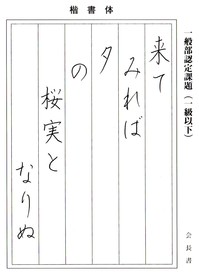 楷書体
一般部認定課題（一級以下）
来て
みれば
夕
の
桜実と
なりぬ
会長書